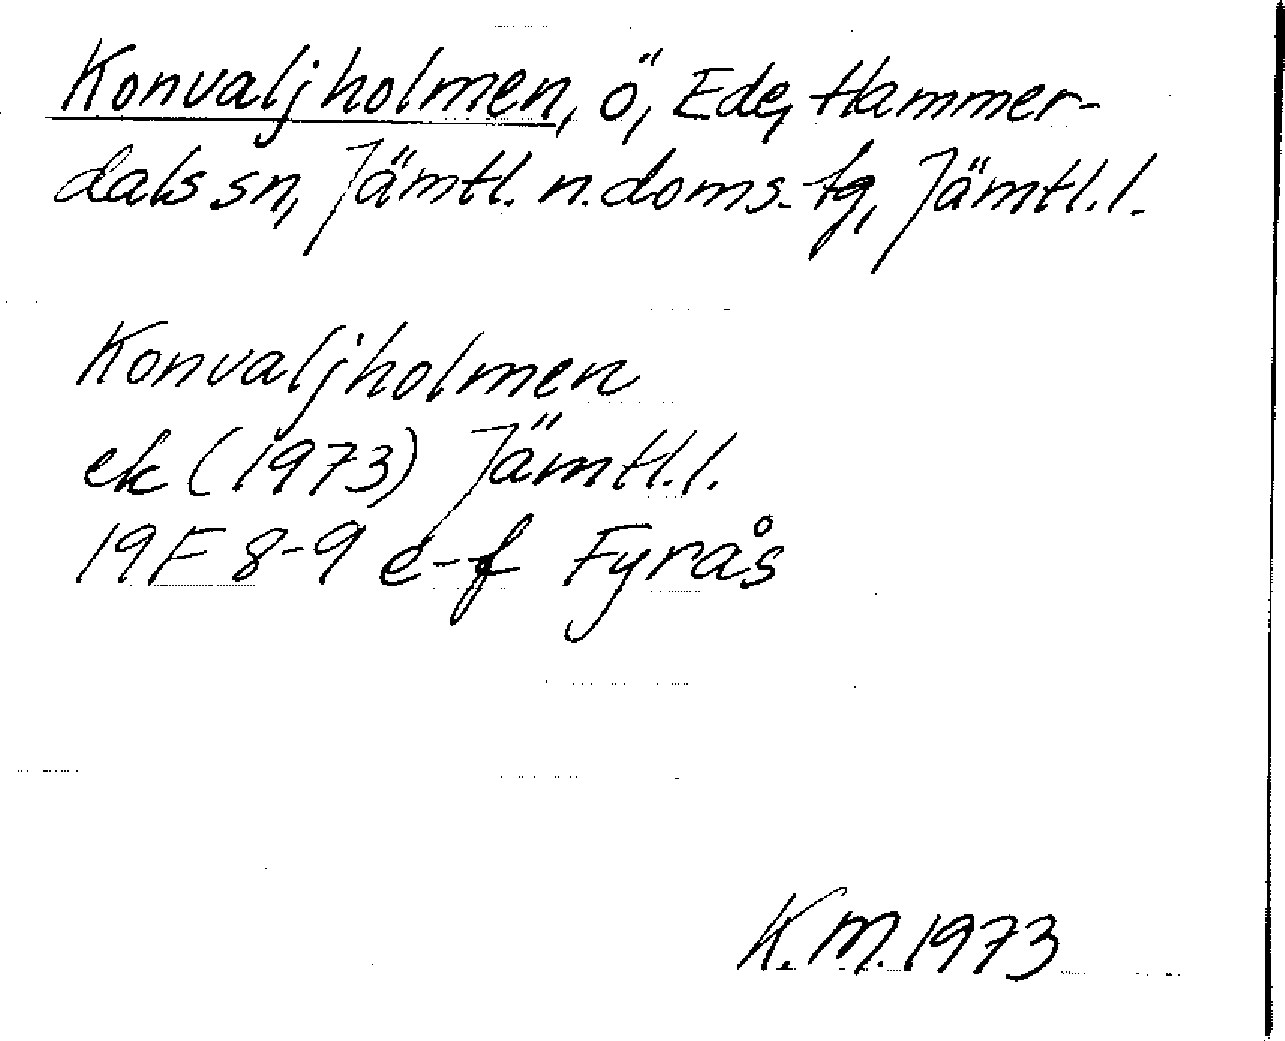 Konvaljholmen, ö, Ede, Hammer-
dals sn, Jämtl. n. doms. tg, Jämtl. l.
Konvaljholmen
ek (1973) Jämtl. l.
19F 8-9 e-f Fyrås
K. M. 1973